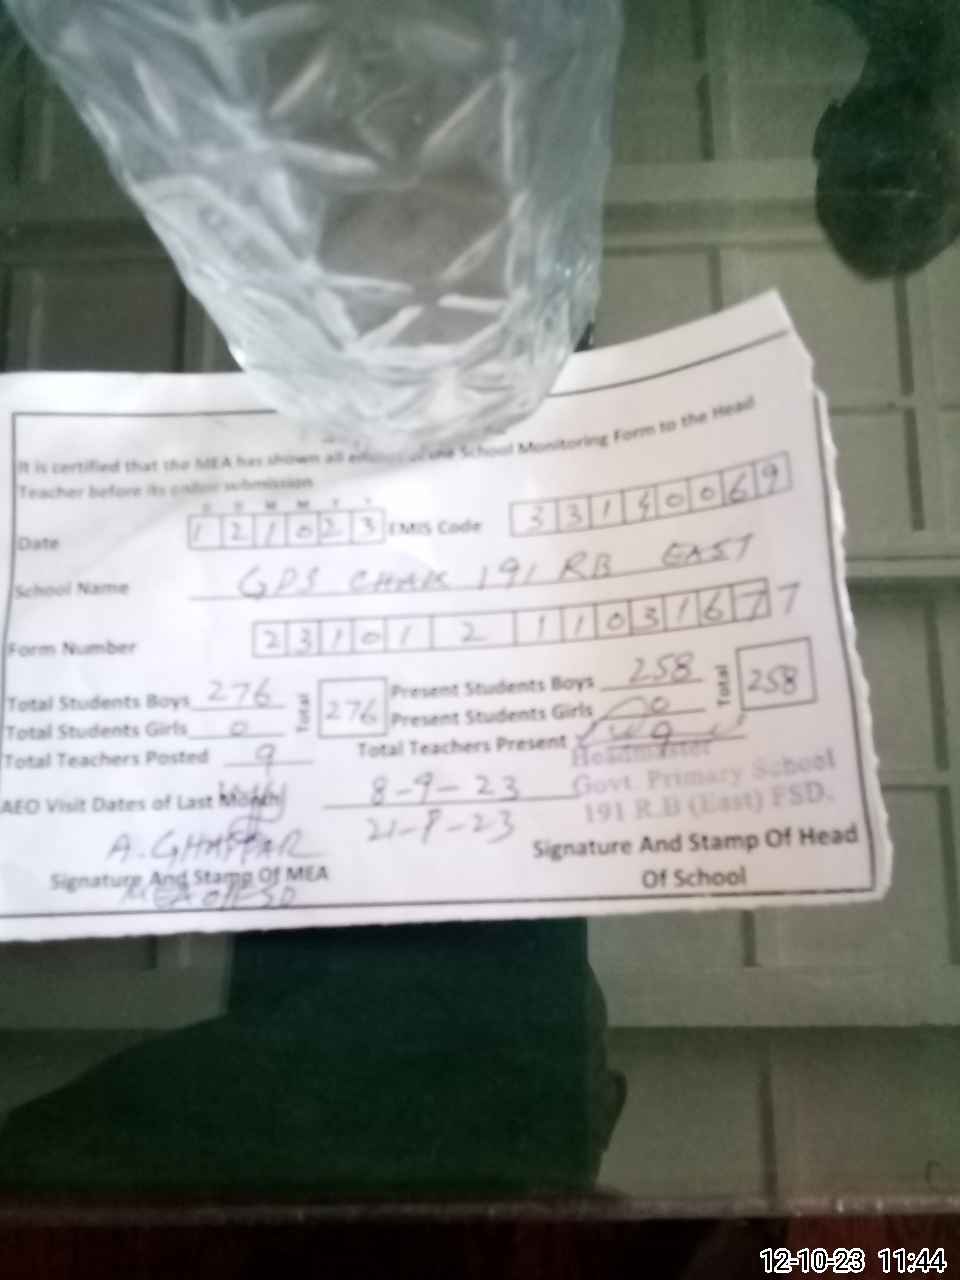 It is certified that the MEA has shown all the School Monitoring Form to the Head
Teacher before its online submission
D D M M Y Y
Date 1 2 1 0 2 3 EMIS Code 3 3 1 4 0 0 6 9
School Name GPS CHAK 191 RB EAST
Form Number 2 3 1 0 1 2 1 1 0 3 1 6 7 7
Total Students Boys 276 Total 276 Present Students Boys 258 Total 258
Total Students Girls 0 Present Students Girls 0
Total Teachers Posted 9 Total Teachers Present 9
Headmaster
Govt. Primary School
191 R.B (East) FSD.
AEO Visit Dates of Last Month 8-9-23
21-9-23
A. GHAFFAR
Signature And Stamp Of MEA
Signature And Stamp Of Head
Of School
12-10-23 11:44